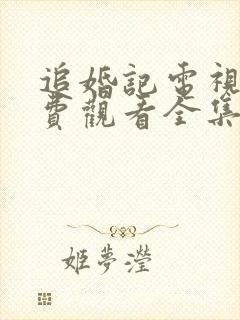 追婚記電視
費觀看全集
姬夢瀅